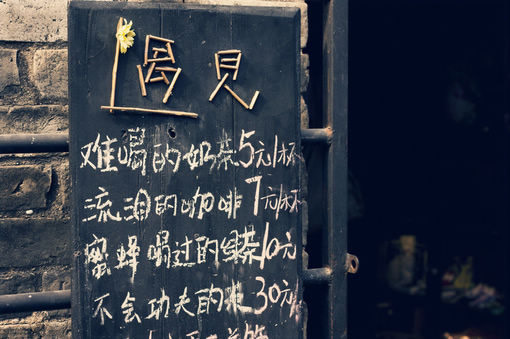 遇见
难喝的奶茶5元/杯
流泪的咖啡7元/杯
蜜蜂喝过的绿茶10元
不会功夫的 30元